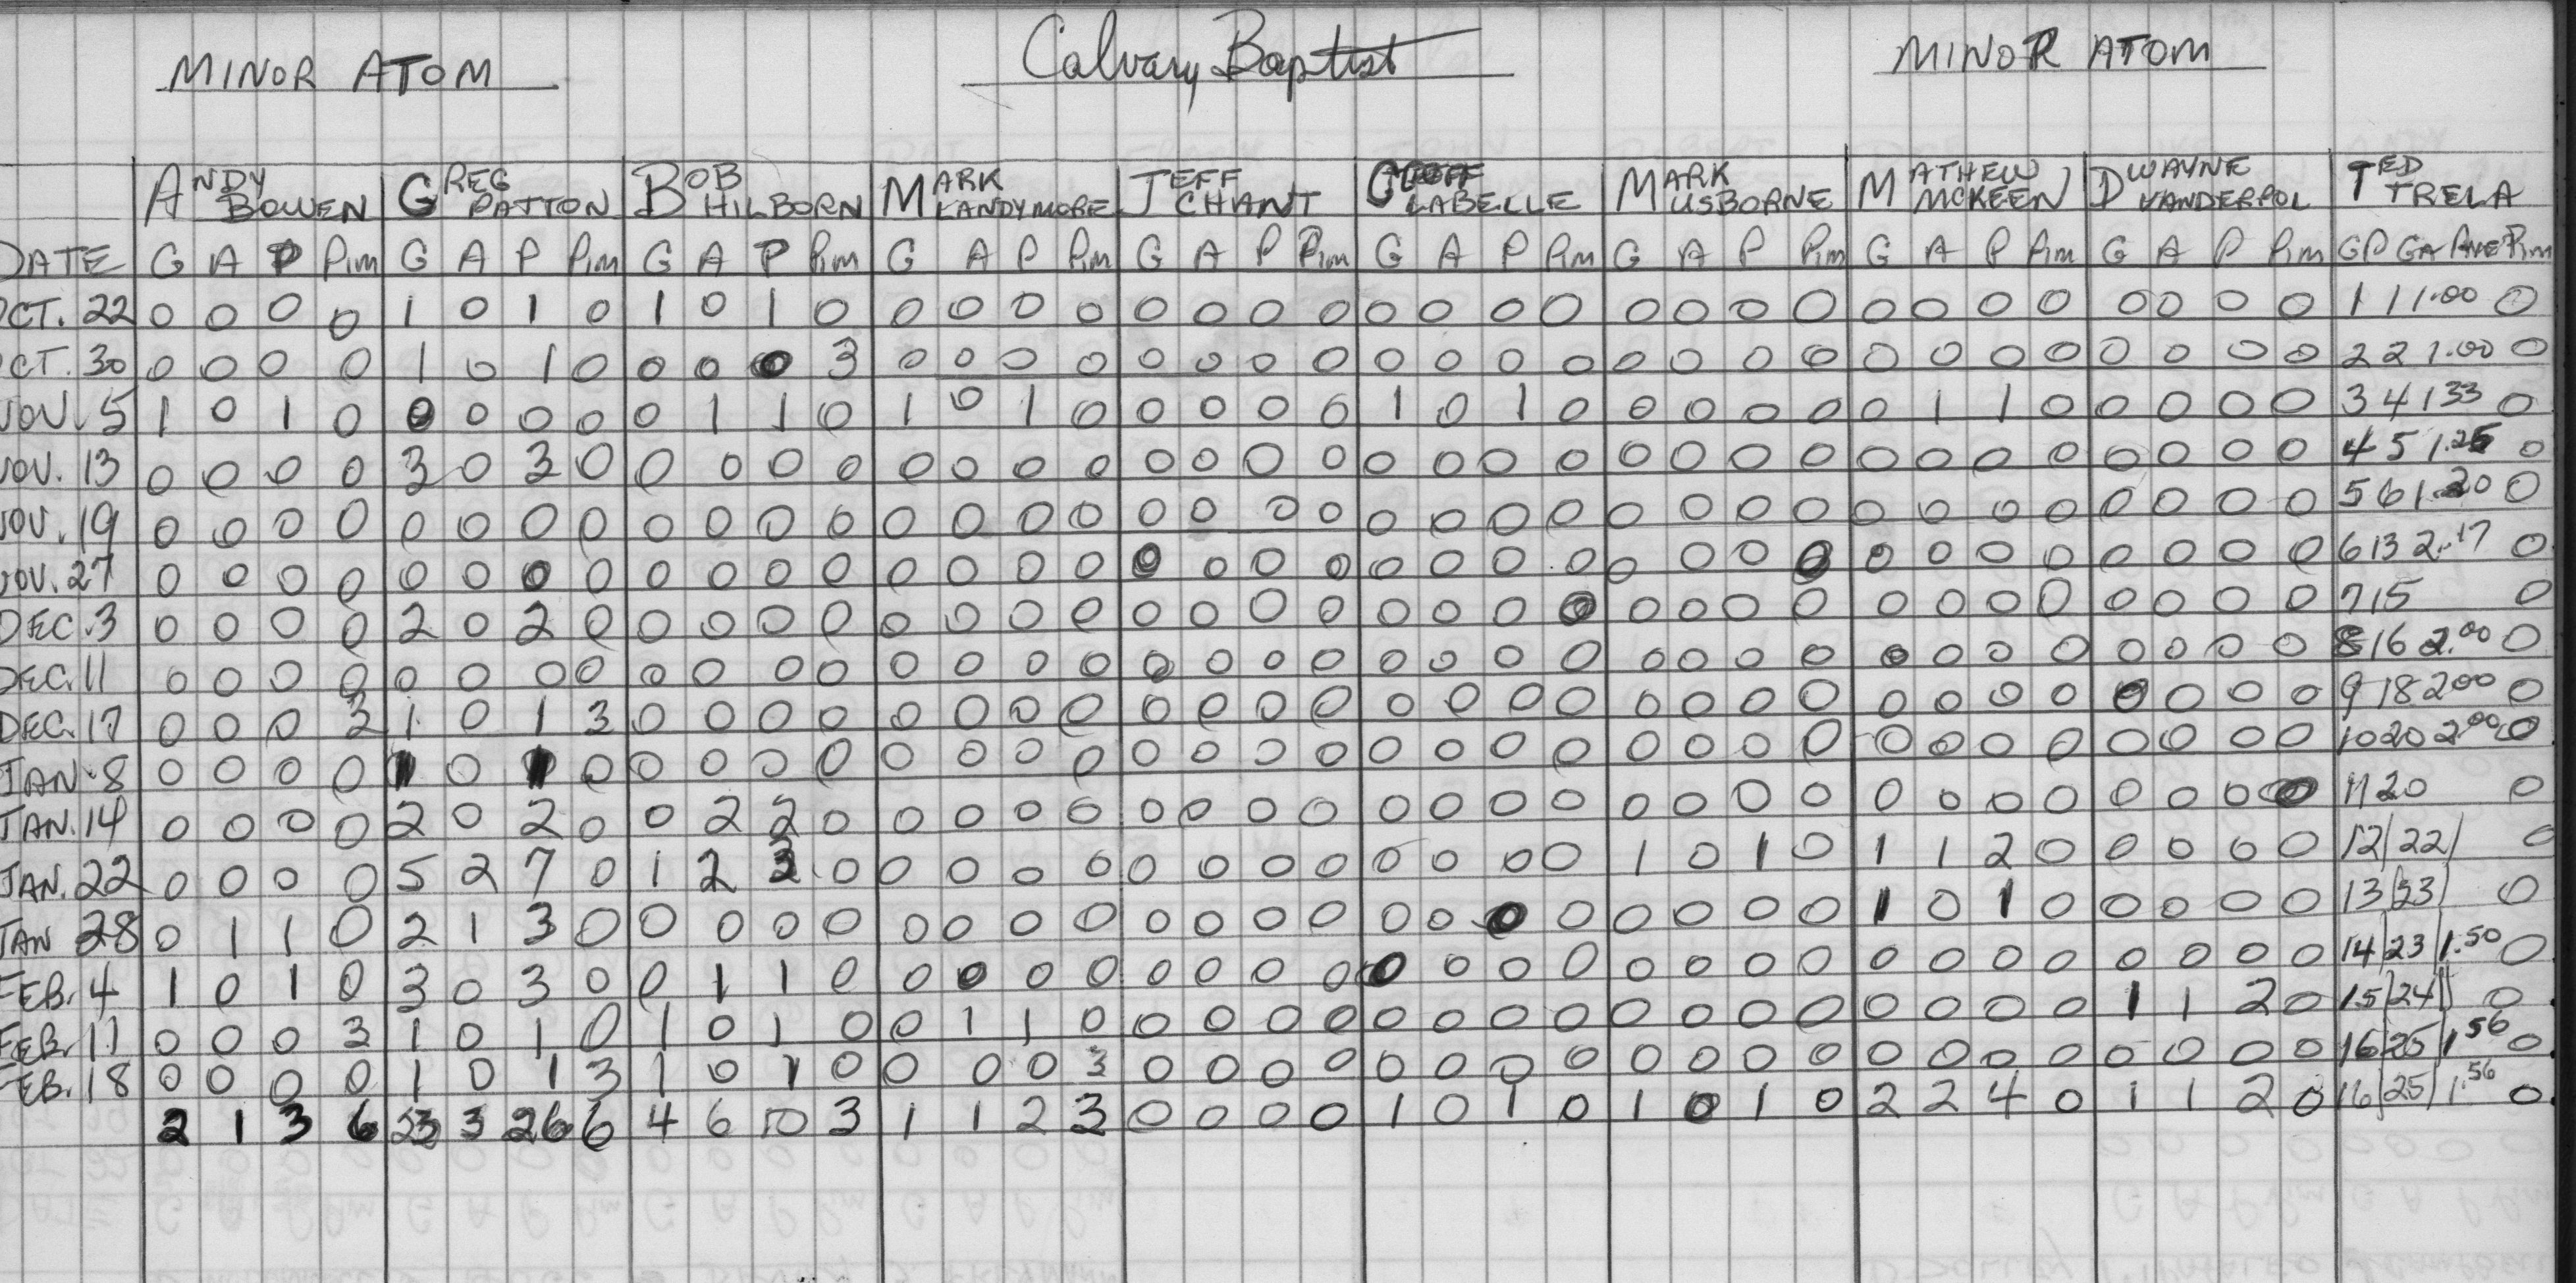 MINOR ATOM Calvary Baptist MINOR ATOM
ANDY BOWEN GREG PATTON BOB HILBORN MARK LANDYMORE JEFF CHANT GEOFF LABELLE MARK USBORNE MATHEW MCKEEN DWAYNE VANDERPOL TED TRELA
DATE G A P Pim G A P Pim G A P Pim G A P Pim G A P Pim G A P Pim G A P Pim G A P Pim G A P Pim GP GA Ave Pim
OCT. 22 0 0 0 0 1 0 1 0 1 0 1 0 0 0 0 0 0 0 0 0 0 0 0 0 0 0 0 0 0 0 0 0 0 0 0 0 1 1 1.00 0
OCT. 30 0 0 0 0 1 0 1 0 0 0 0 3 0 0 0 0 0 0 0 0 0 0 0 0 0 0 0 0 0 0 0 0 0 0 0 0 2 2 1.00 0
NOV. 5 1 0 1 0 0 0 0 0 0 1 1 0 1 0 1 0 0 0 0 0 1 0 1 0 0 0 0 0 0 1 1 0 0 0 0 0 3 4 1 33 0
NOV. 13 0 0 0 0 3 0 3 0 0 0 0 0 0 0 0 0 0 0 0 0 0 0 0 0 0 0 0 0 0 0 0 0 0 0 0 0 4 5 1.25 0
NOV. 19 0 0 0 0 0 0 0 0 0 0 0 0 0 0 0 0 0 0 0 0 0 0 0 0 0 0 0 0 0 0 0 0 0 0 0 0 5 6 1.20 0
NOV. 27 0 0 0 0 0 0 0 0 0 0 0 0 0 0 0 0 0 0 0 0 0 0 0 0 0 0 0 0 0 0 0 0 0 0 0 0 6 13 2.17 0
DEC. 3 0 0 0 0 2 0 2 0 0 0 0 0 0 0 0 0 0 0 0 0 0 0 0 0 0 0 0 0 0 0 0 0 0 0 0 0 7 15 0
DEC. 11 0 0 0 0 0 0 0 0 0 0 0 0 0 0 0 0 0 0 0 0 0 0 0 0 0 0 0 0 0 0 0 0 0 0 0 0 8 16 2.00 0
DEC. 17 0 0 0 3 1 0 1 3 0 0 0 0 0 0 0 0 0 0 0 0 0 0 0 0 0 0 0 0 0 0 0 0 0 0 0 0 9 18 2 00 0
JAN. 8 0 0 0 0 1 0 1 0 0 0 0 0 0 0 0 0 0 0 0 0 0 0 0 0 0 0 0 0 0 0 0 0 0 0 0 0 10 20 2.00 0
JAN. 14 0 0 0 0 2 0 2 0 0 2 2 0 0 0 0 0 0 0 0 0 0 0 0 0 0 0 0 0 0 0 0 0 0 0 0 0 11 20 0
JAN. 22 0 0 0 0 5 2 7 0 1 2 3 0 0 0 0 0 0 0 0 0 0 0 0 0 1 0 1 0 1 1 2 0 0 0 0 0 12 | 22 | 0
JAN 28 0 1 1 0 2 1 3 0 0 0 0 0 0 0 0 0 0 0 0 0 0 0 0 0 0 0 0 0 1 0 1 0 0 0 0 0 13 | 23 | 0
FEB. 4 1 0 1 0 3 0 3 0 0 1 1 0 0 0 0 0 0 0 0 0 0 0 0 0 0 0 0 0 0 0 0 0 0 0 0 0 14 | 23 | 1.50 0
FEB. 11 0 0 0 3 1 0 1 0 1 0 1 0 0 1 1 0 0 0 0 0 0 0 0 0 0 0 0 0 0 0 0 0 1 1 2 0 15 | 24 | 0
FEB. 18 0 0 0 0 1 0 1 3 1 0 1 0 0 0 0 3 0 0 0 0 0 0 0 0 0 0 0 0 0 0 0 0 0 0 0 0 16 | 25 | 1 56 0
2 1 3 6 23 3 26 6 4 6 10 3 1 1 2 3 0 0 0 0 1 0 1 0 1 0 1 0 2 2 4 0 1 1 2 0 16 | 25 | 1.56 0